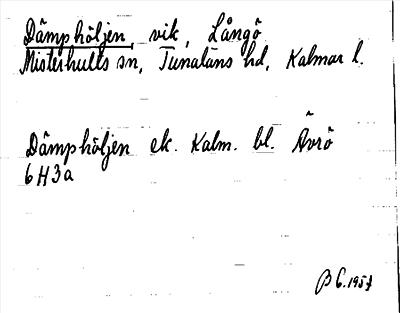 Dämphöljen, vik, Långö
Misterhults sn, Tunaläns hd, Kalmar l.
Dämphöljen ek. Kalm. bl. Ävrö
6H3a
1957